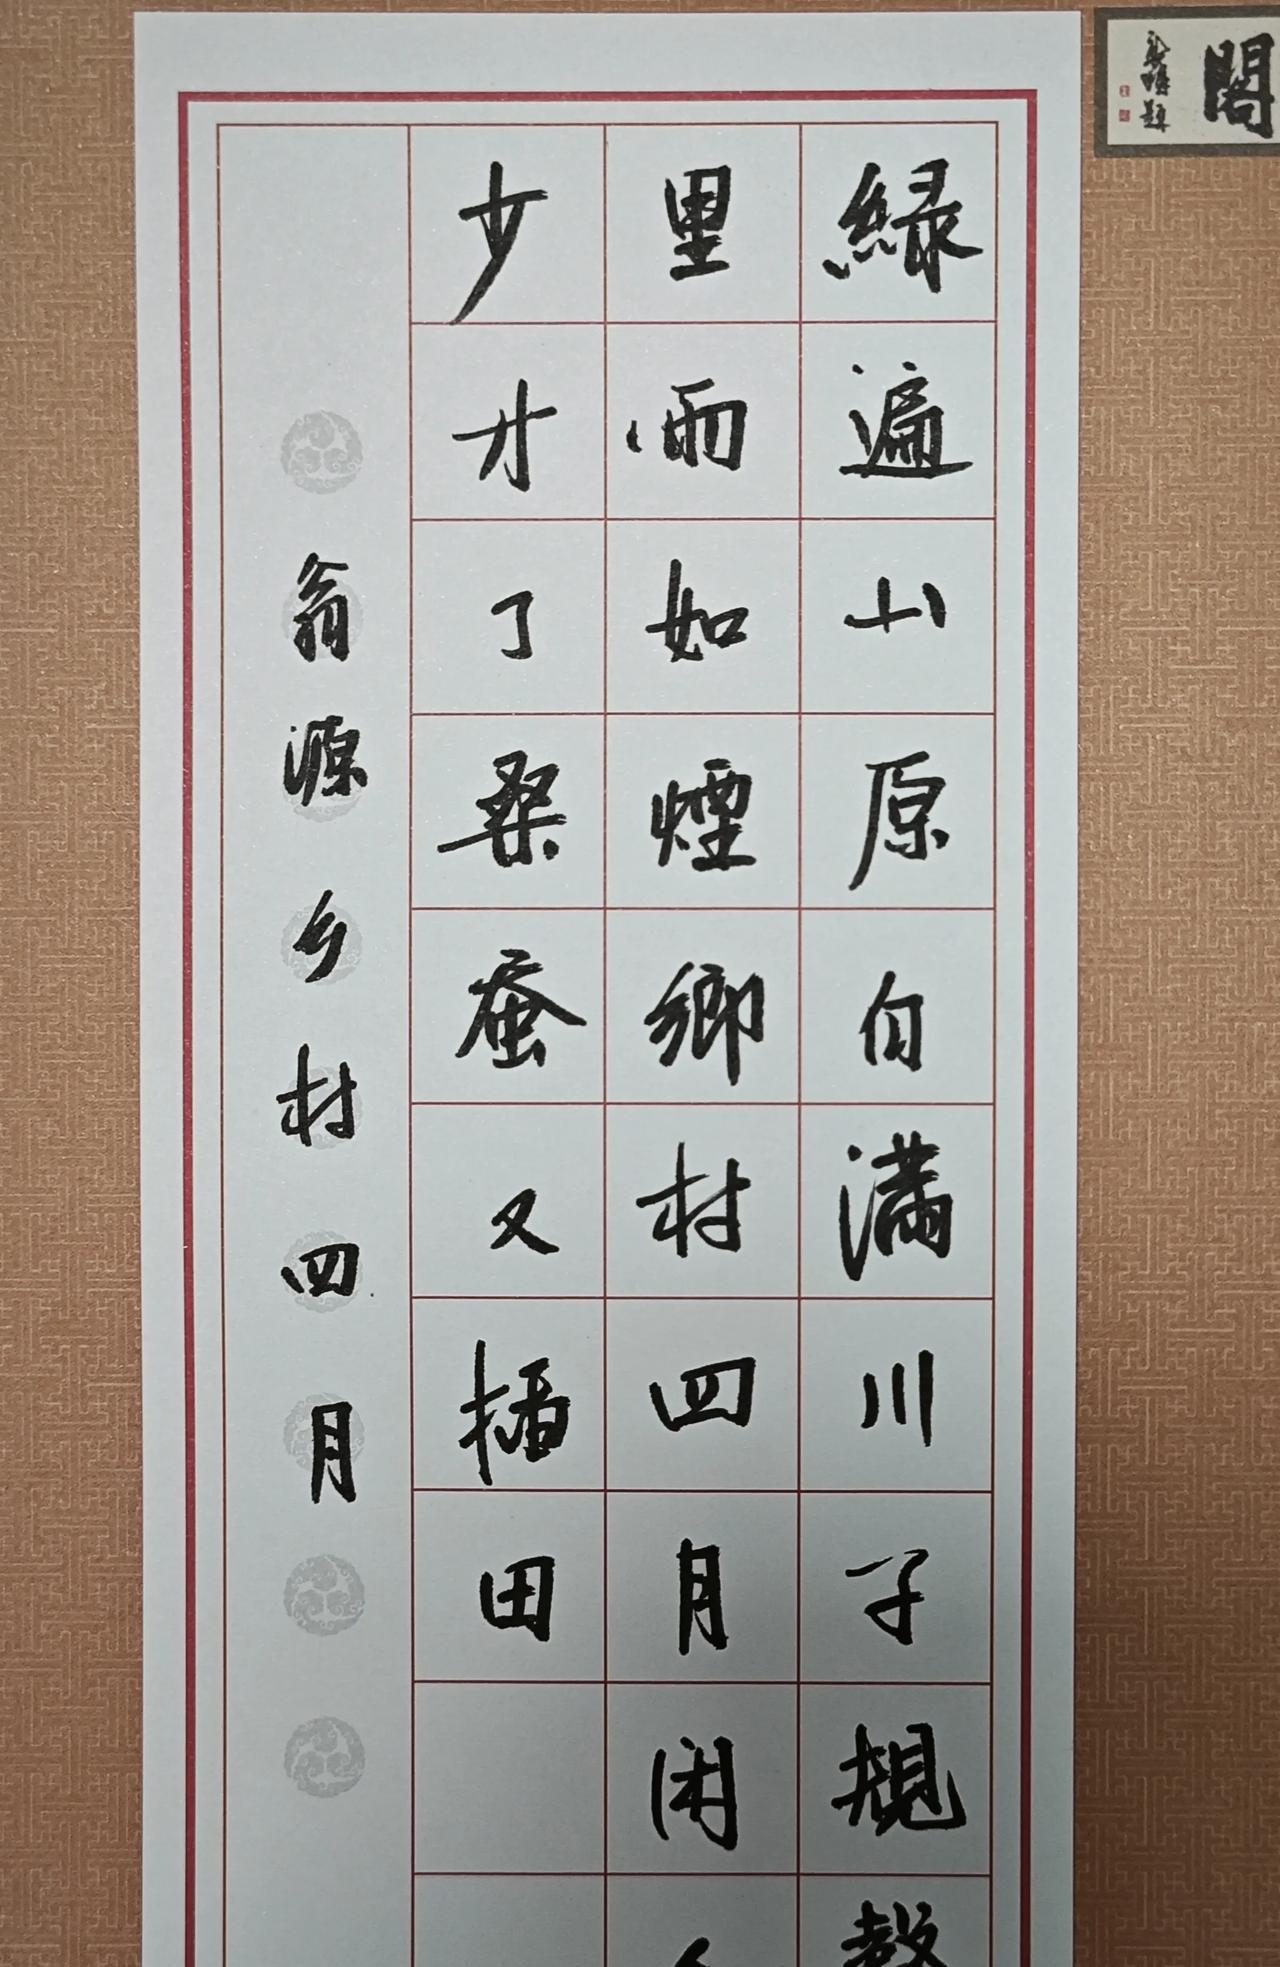 閣
題
緑遍山原白滿川子規聲
里雨如煙鄉村四月闲
少才了桑蚕又插田
翁源乡村四月